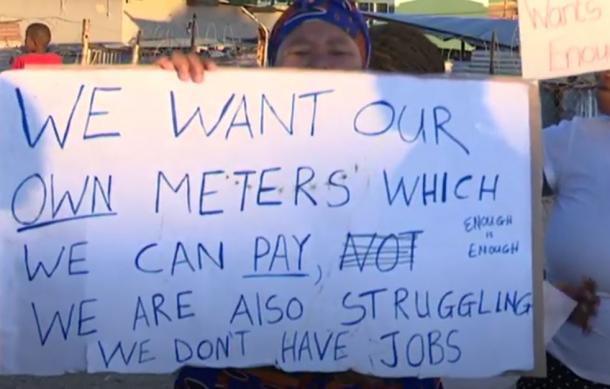 WE WANT OUR
OWN METERS WHICH
WE CAN PAY, NOT
ENOUGH
IS
ENOUGH
WE ARE AlSO STRUGGLING
WE DON'T HAVE JOBS
Wants
Enou